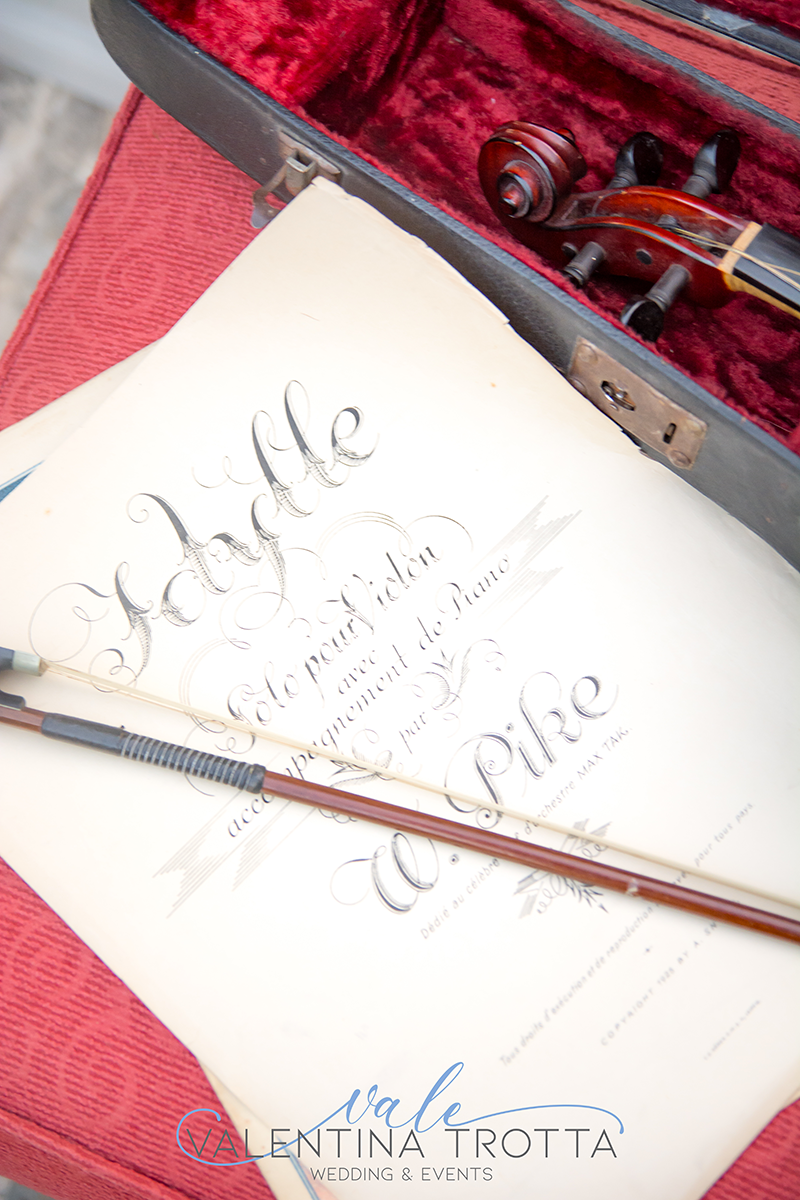 Idylle
Solo pour Violon
avec
accompagnement de Piano
par
W. Pike
Dédié au célèbre d'orchestre MAX TAK.
Tous droits d'exécution et de reproduction pour tous pays
COPYRIGHT BY A.
vale
VALENTINA TROTTA
WEDDING & EVENTS